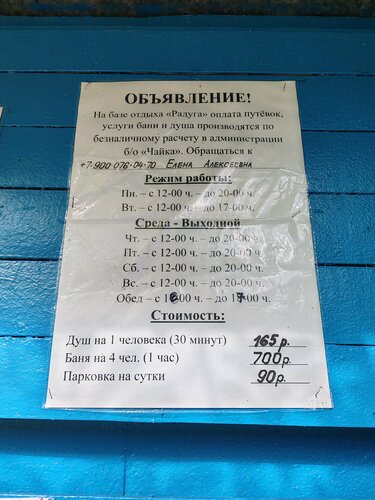 ОБЪЯВЛЕНИЕ!
На базе отдыха «Радуга» оплата путёвок,
услуги бани и душа производятся по
безналичному расчету в администрации
б/о «Чайка». Обращаться к
+7-900-076-04-70 Елена Алексеевна
Режим работы:
Пн. – с 12-00 ч. – до 20-00 ч.
Вт. – с 12-00 ч. – до 17-00 ч.
Среда - Выходной
Чт. – с 12-00 ч. – до 20-00 ч.
Пт. – с 12-00 ч. – до 20-00 ч.
Сб. – с 12-00 ч. – до 20-00 ч.
Вс. – с 12-00 ч. – до 20-00 ч.
Обед – с 16-00 ч. – до 17-00 ч.
Стоимость:
Душ на 1 человека (30 минут) 165 р.
Баня на 4 чел. (1 час) 700 р.
Парковка на сутки 90 р.